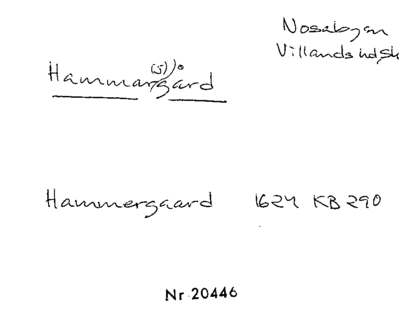 Nosabyn
Villands hd Sk
Hammar(s)gård
Hammergaard 1624 KB 290
Nr 20446